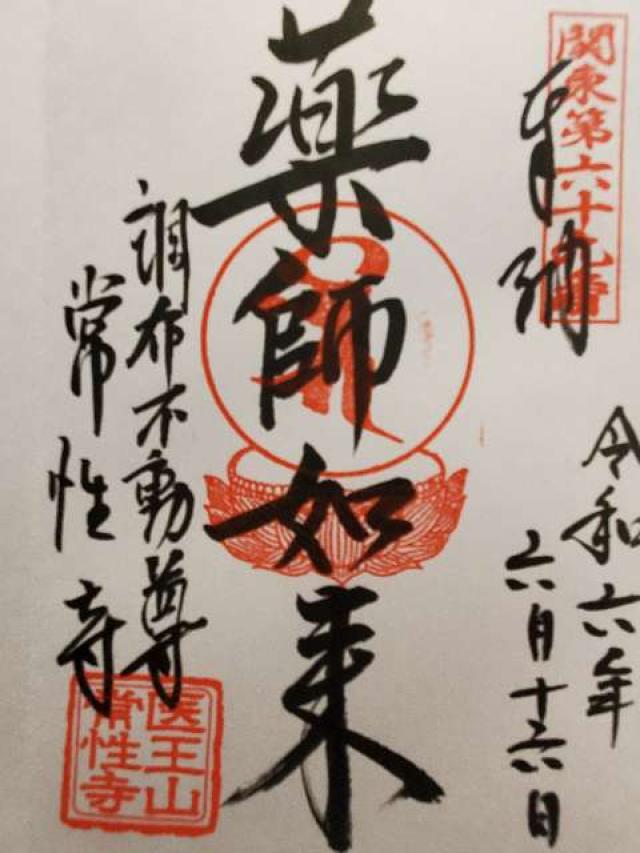 関東第六十九番
奉納
令和六年
六月十六日
薬師如来
調布不動尊
常性寺
医王山
常性寺